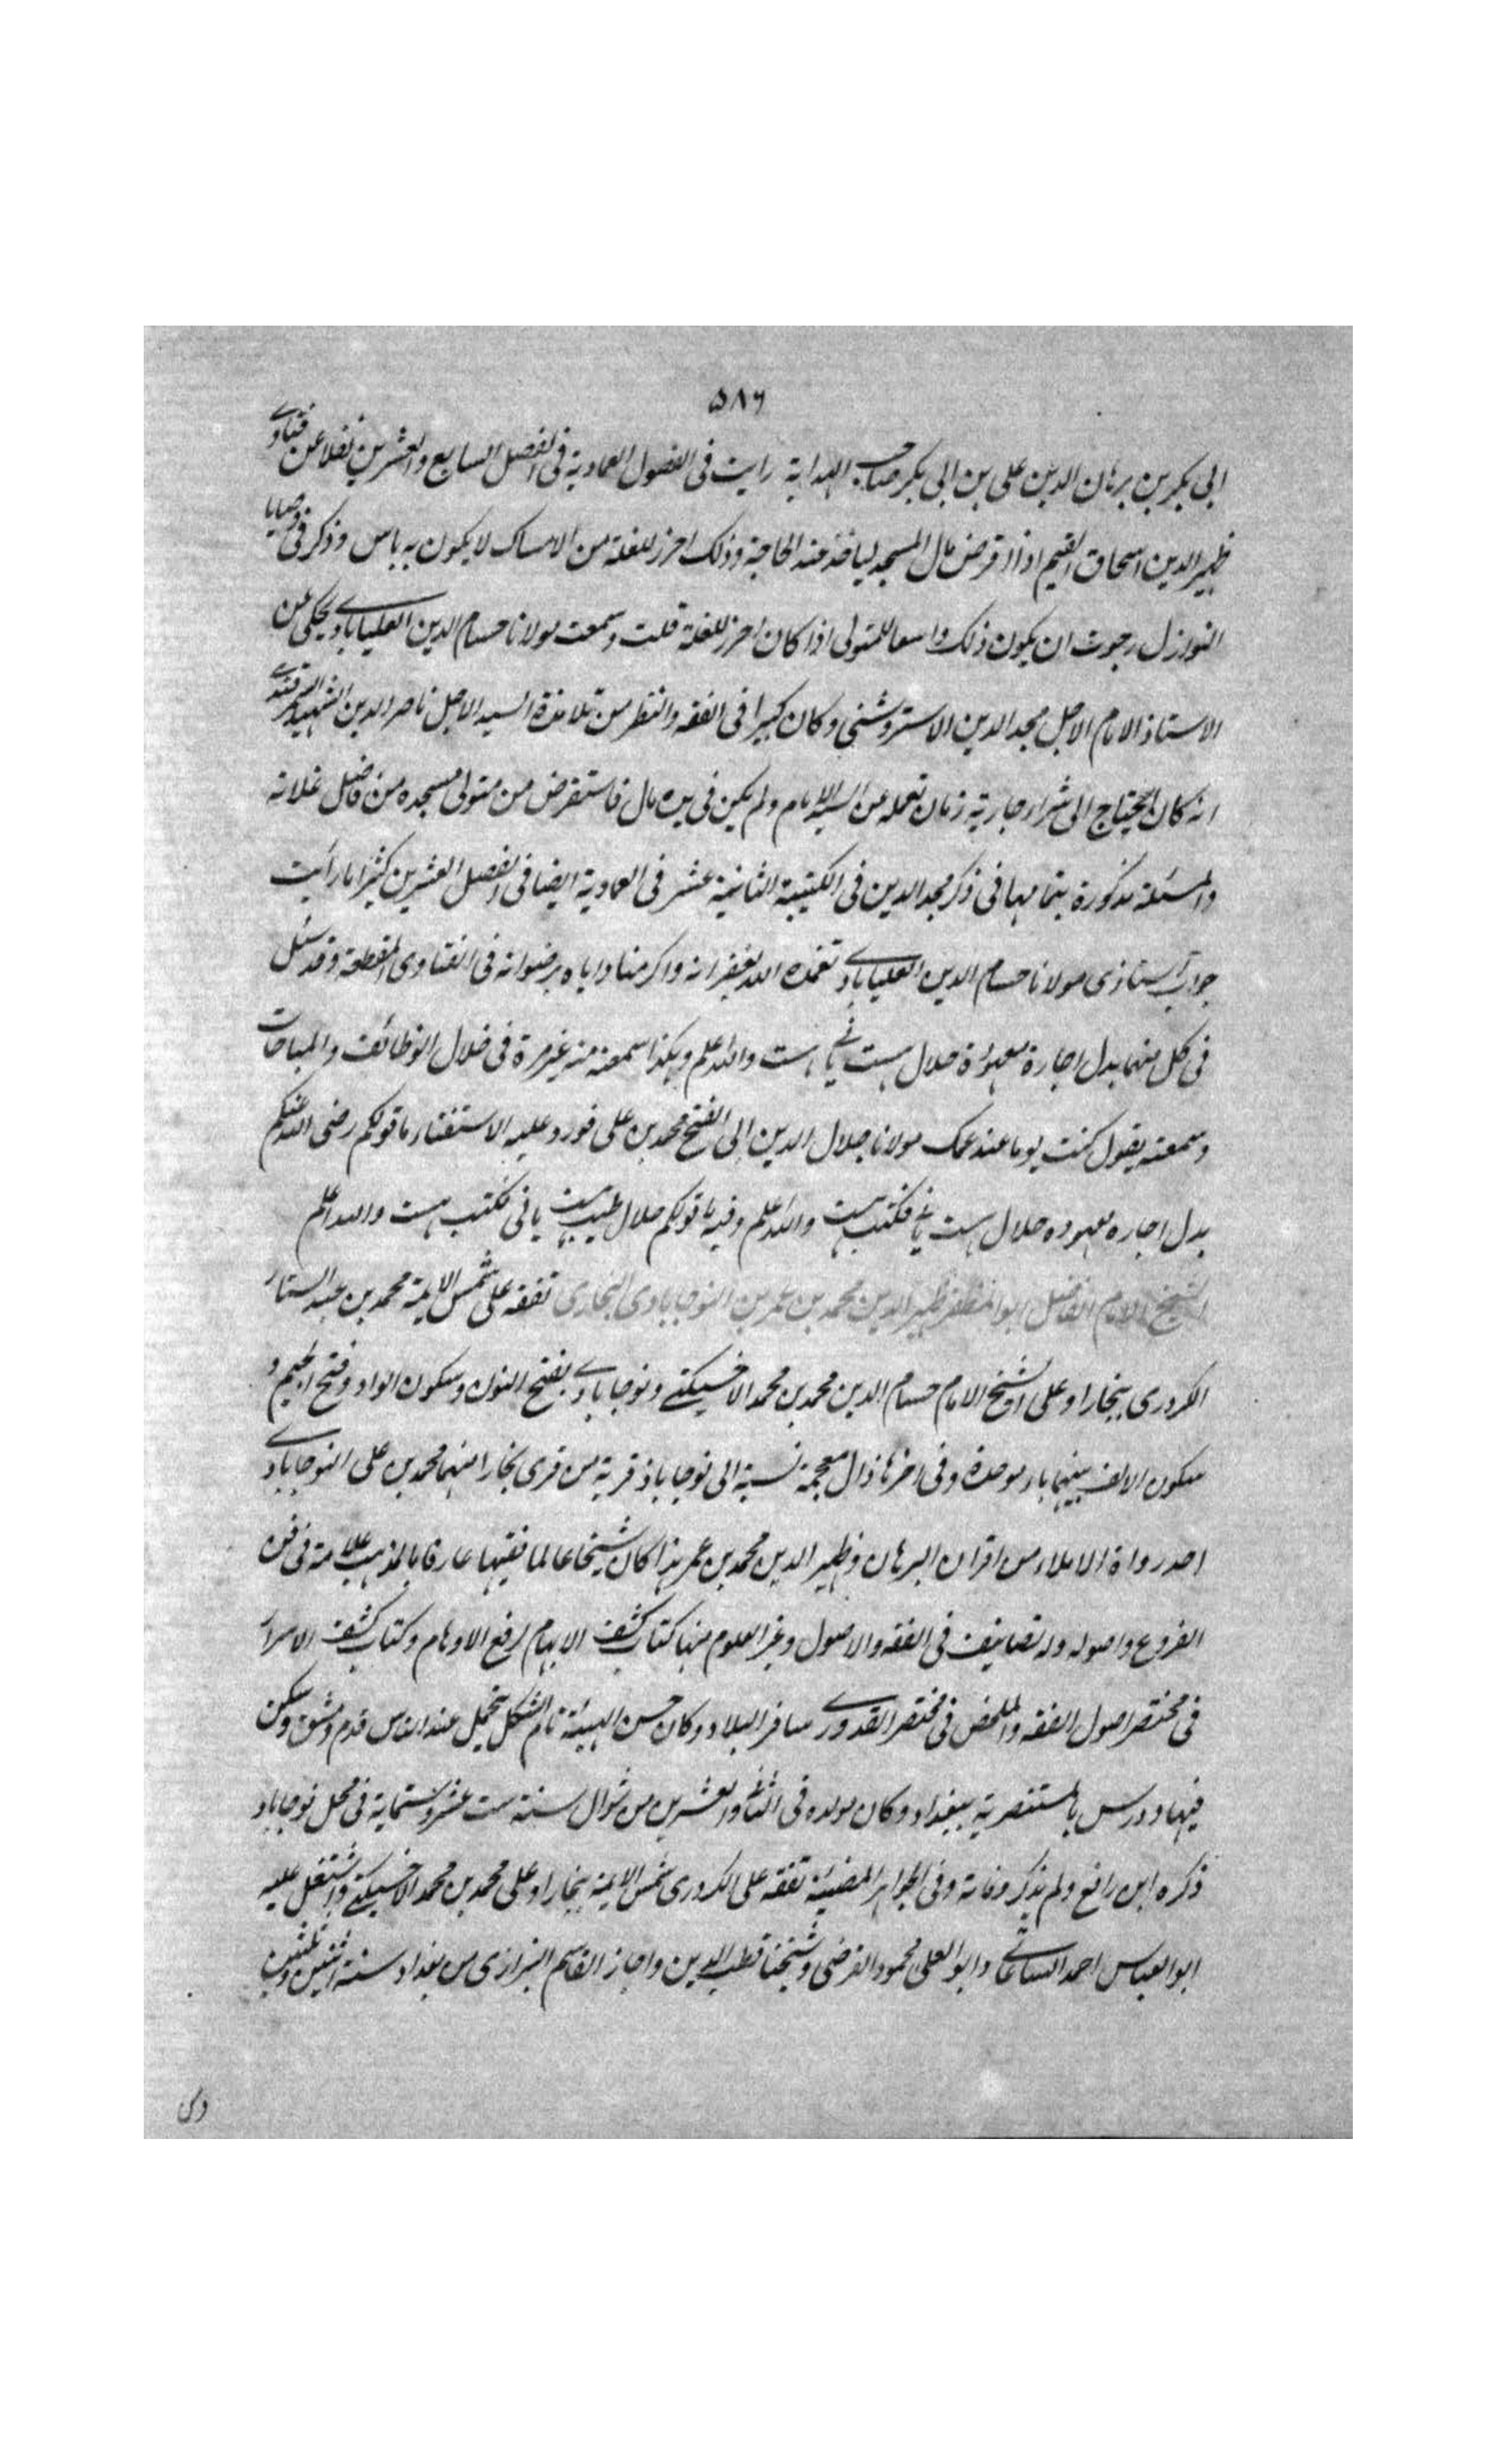 ۵۸۶
ابى بكر بن برهان الدين على بن ابى بكر صاحب الهداية رايت فى الفصول العمادية فى الفصل السابع والعشرين نقلا عن فتاوے
ظهير الدين اسحاق القيم اذا اقرض مال المسجد لياخذ عند الحاجة وذلك احرز للغلة من الامساك لا يكون به باس وذكر فى وصايا
النوازل رجوت ان يكون ذلك واسعا للمتولى اذا كان احرز للغلة قلت وسمعت مولانا حسام الدين العليابادے يحكى عن
الاستاذ الامام الاجل مجد الدين الاستروشنى وكان كبيرا فى الفقه والنظر من تلامذة السيد الاجل ناصر الدين الشهيد السمرقندے
انه كان يحتاج الى شراء جارية زمان تعلمه عن السيد الامام ولم يكن فى يده مال فاستقرض من متولى مسجده من فاضل غلاته
والمسئلة مذكورة بتمامها فى ذكر مجد الدين فى الكتيبة الثانية عشر فى العمادية ايضا فى الفصل العشرين كثيرا ما رأيت
جواب استاذى مولانا حسام الدين العليابادے تغمده الله بغفرانه واكرمنا واياه برضوانه فى الفتاوى المقطعة وقد سئل
فى كل منهما بدل اجارة معهودة حلال هست يا نے هست والله اعلم وهكذا سمعته منه غير مرة فى خلال الوظائف والمباحات
وسمعته يقول كنت يوما عند عمك مولانا جلال الدين ابى الفتح محمد بن على فورد عليه الاستفتاء ما قولكم رضى الله عنكم
بدل اجاره معهوده حلال هست يا نے فكتب هست والله اعلم وفيه ما قولكم حلال طيب هست يا نى فكتب هست والله اعلم
الشيخ الامام الفاضل ابو المظفر ظهير الدين محمد بن عمر بن النوجابادى البخارى تفقه على شمس الايمة محمد بن عبد الستار
الكردرى ببخارا وعلى الشيخ الامام حسام الدين محمد بن محمد الاخسيكتے ونوجابادے بفتح النون وسكون الواو وفتح الجيم و
سكون الالف بينهما باء موحدة وفى اخرها ذال معجمة نسبة الى نوجاباذ قرية من قرى بخارا منها محمد بن على النوجابادے
احد رواة الاملاء من اقران البرهان وظهير الدين محمد بن عمر هذا كان شيخا عالما فقيها عارفا بالمذهب علامة فى فن
الفروع واصوله وله تصانيف فى الفقه والاصول وغير العلوم منها كتاب كشف الابهام لرفع الاوهام وكتاب كشف الاسرار
فى مختصر اصول الفقه والملخص فى مختصر القدورے سافر البلاد وكان حسن الهيئة تام الشكل يتجمل عند الناس قدم دمشق وسكن
فيها ودرس بالمستنصرية ببغداد وكان مولده فى الثانے والعشرين من شوال سنة ست عشر وستماية فى محل نوجاباد
ذكره ابن رافع ولم يذكر وفاته وفى الجواهر المضيئة تفقه على الكردرى شمس الايمة ببخارا وعلى محمد بن محمد الاخسيكتے واشتغل عليه
ابو العباس احمد الساعاتے وابو العلى محمود الفرضى وشيخنا قطب الدين واجاز القاسم البرزازى من بغداد سنة اثنتين وستين